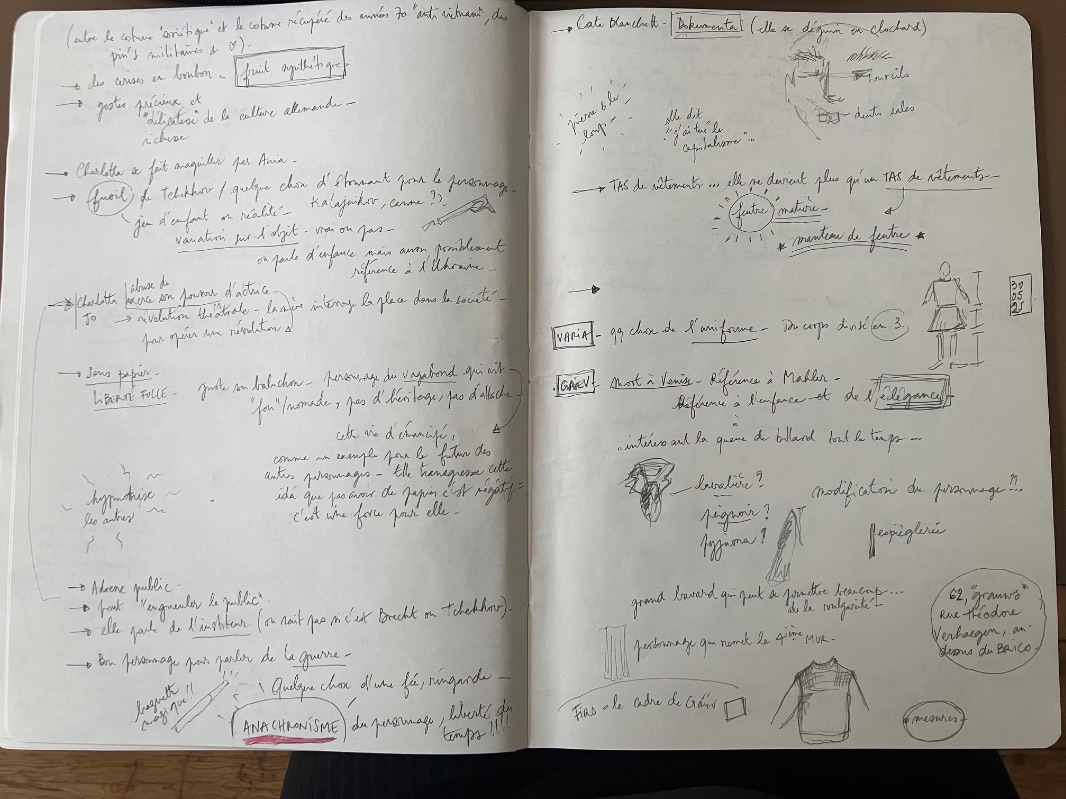 (entre le costume "soviétique" et le costume récupéré des années 70 "anti vietnam", des
pin's militaires &
→ des cerises en bonbon - fruit synthétique
→ gestes précieux et
"délicatesse" de la culture allemande -
richesse
→ Charlotta se fait maquiller par Ania -
→ fusil de Tchekhov / quelque chose d'étonnant pour le personnage -
jeu d'enfant ou réalité - Kalajnikov, canne ??
variation sur l'objet - vrai ou pas -
on parle d'enfance mais aussi possiblement
référence à l'Ukraine -
→ Charlotta / abuse de
exerce son pouvoir d'actrice
JO → révolution théâtrale - la mère interroge la place dans la société -
pour opérer une révolution
→ Sans papier -
LIBERTÉ FOLLE
juste son baluchon - personnage du vagabond qui vit
"fou"/nomade, pas d'héritage, pas d'attache -
cette vie d'émancipé,
comme un exemple pour le futur des
autres personnages - Elle transgresse cette
idée que pas avoir de papier c'est négatif =
c'est une force pour elle -
hypnotise
les autres
→ Adresse public -
→ peut "engueuler le public".
→ elle parle de l'instituteur (on sait pas si c'est Brecht ou Tchekhov).
→ Bon personnage pour parler de la guerre -
baguette
magique!!
Quelque chose d'une fée, ringarde -
ANACHRONISME du personnage, liberté, du
temps !!!!
→ Cate Blanchett - Dokumenta (elle se déguise en clochard)
sourcils
dents sales
pierre & le
loup -
elle dit
"j'ai tué le
capitalisme"...
→ TAS de vêtements ... elle ne devient plus qu'un TAS de vêtements -
feutre matière -
* manteau de feutre *
→
30
05
25
VARIA qq chose de l'uniforme - Du corps divisé en 3.
GAEV - Mort à Venise - Référence à Mahler -
Référence à l'enfance - et de l'élégance
à
. intéressant la queue de billard tout le temps ...
lavalière ?
peignoir ?
pyjama ?
modification du personnage ??
espièglerie
grand bavard qui peut se permettre beaucoup ...
de la vulgarité -
personnage qui remet le 4ième MUR -
62, "grauws"
rue Théodore
Verhaegen, au-
dessus du BRICO -
FIRS = le cadre de Gaev
mesures